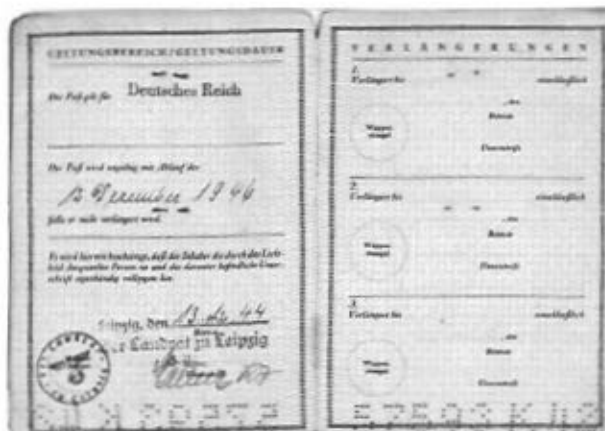 GELTUNGSBEREICH/GELTUNGSDAUER
Der Paß gilt für Deutsches Reich
Der Paß wird ungültig mit Ablauf des
13. Dezember 1946
falls er nicht verlängert wird.
Es wird hiermit bescheinigt, daß der Inhaber die durch das Licht-
bild dargestellte Person ist und die darunter befindliche Unter-
schrift eigenhändig vollzogen hat.
Leipzig, den 13. 12. 44
Der Landrat zu Leipzig
VERLÄNGERUNGEN
1.
Verlängert bis einschließlich
, den
Behörde
Wappen-
stempel
Unterschrift
2.
Verlängert bis einschließlich
, den
Behörde
Wappen-
stempel
Unterschrift
3.
Verlängert bis einschließlich
, den
Behörde
Wappen-
stempel
Unterschrift